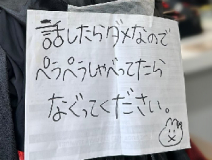 話したらダメなので
ペラペラしゃべってたら
なぐってください。